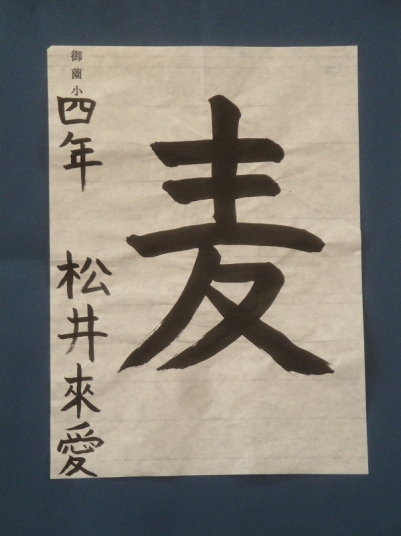 麦
御薗小
四年 松井來愛